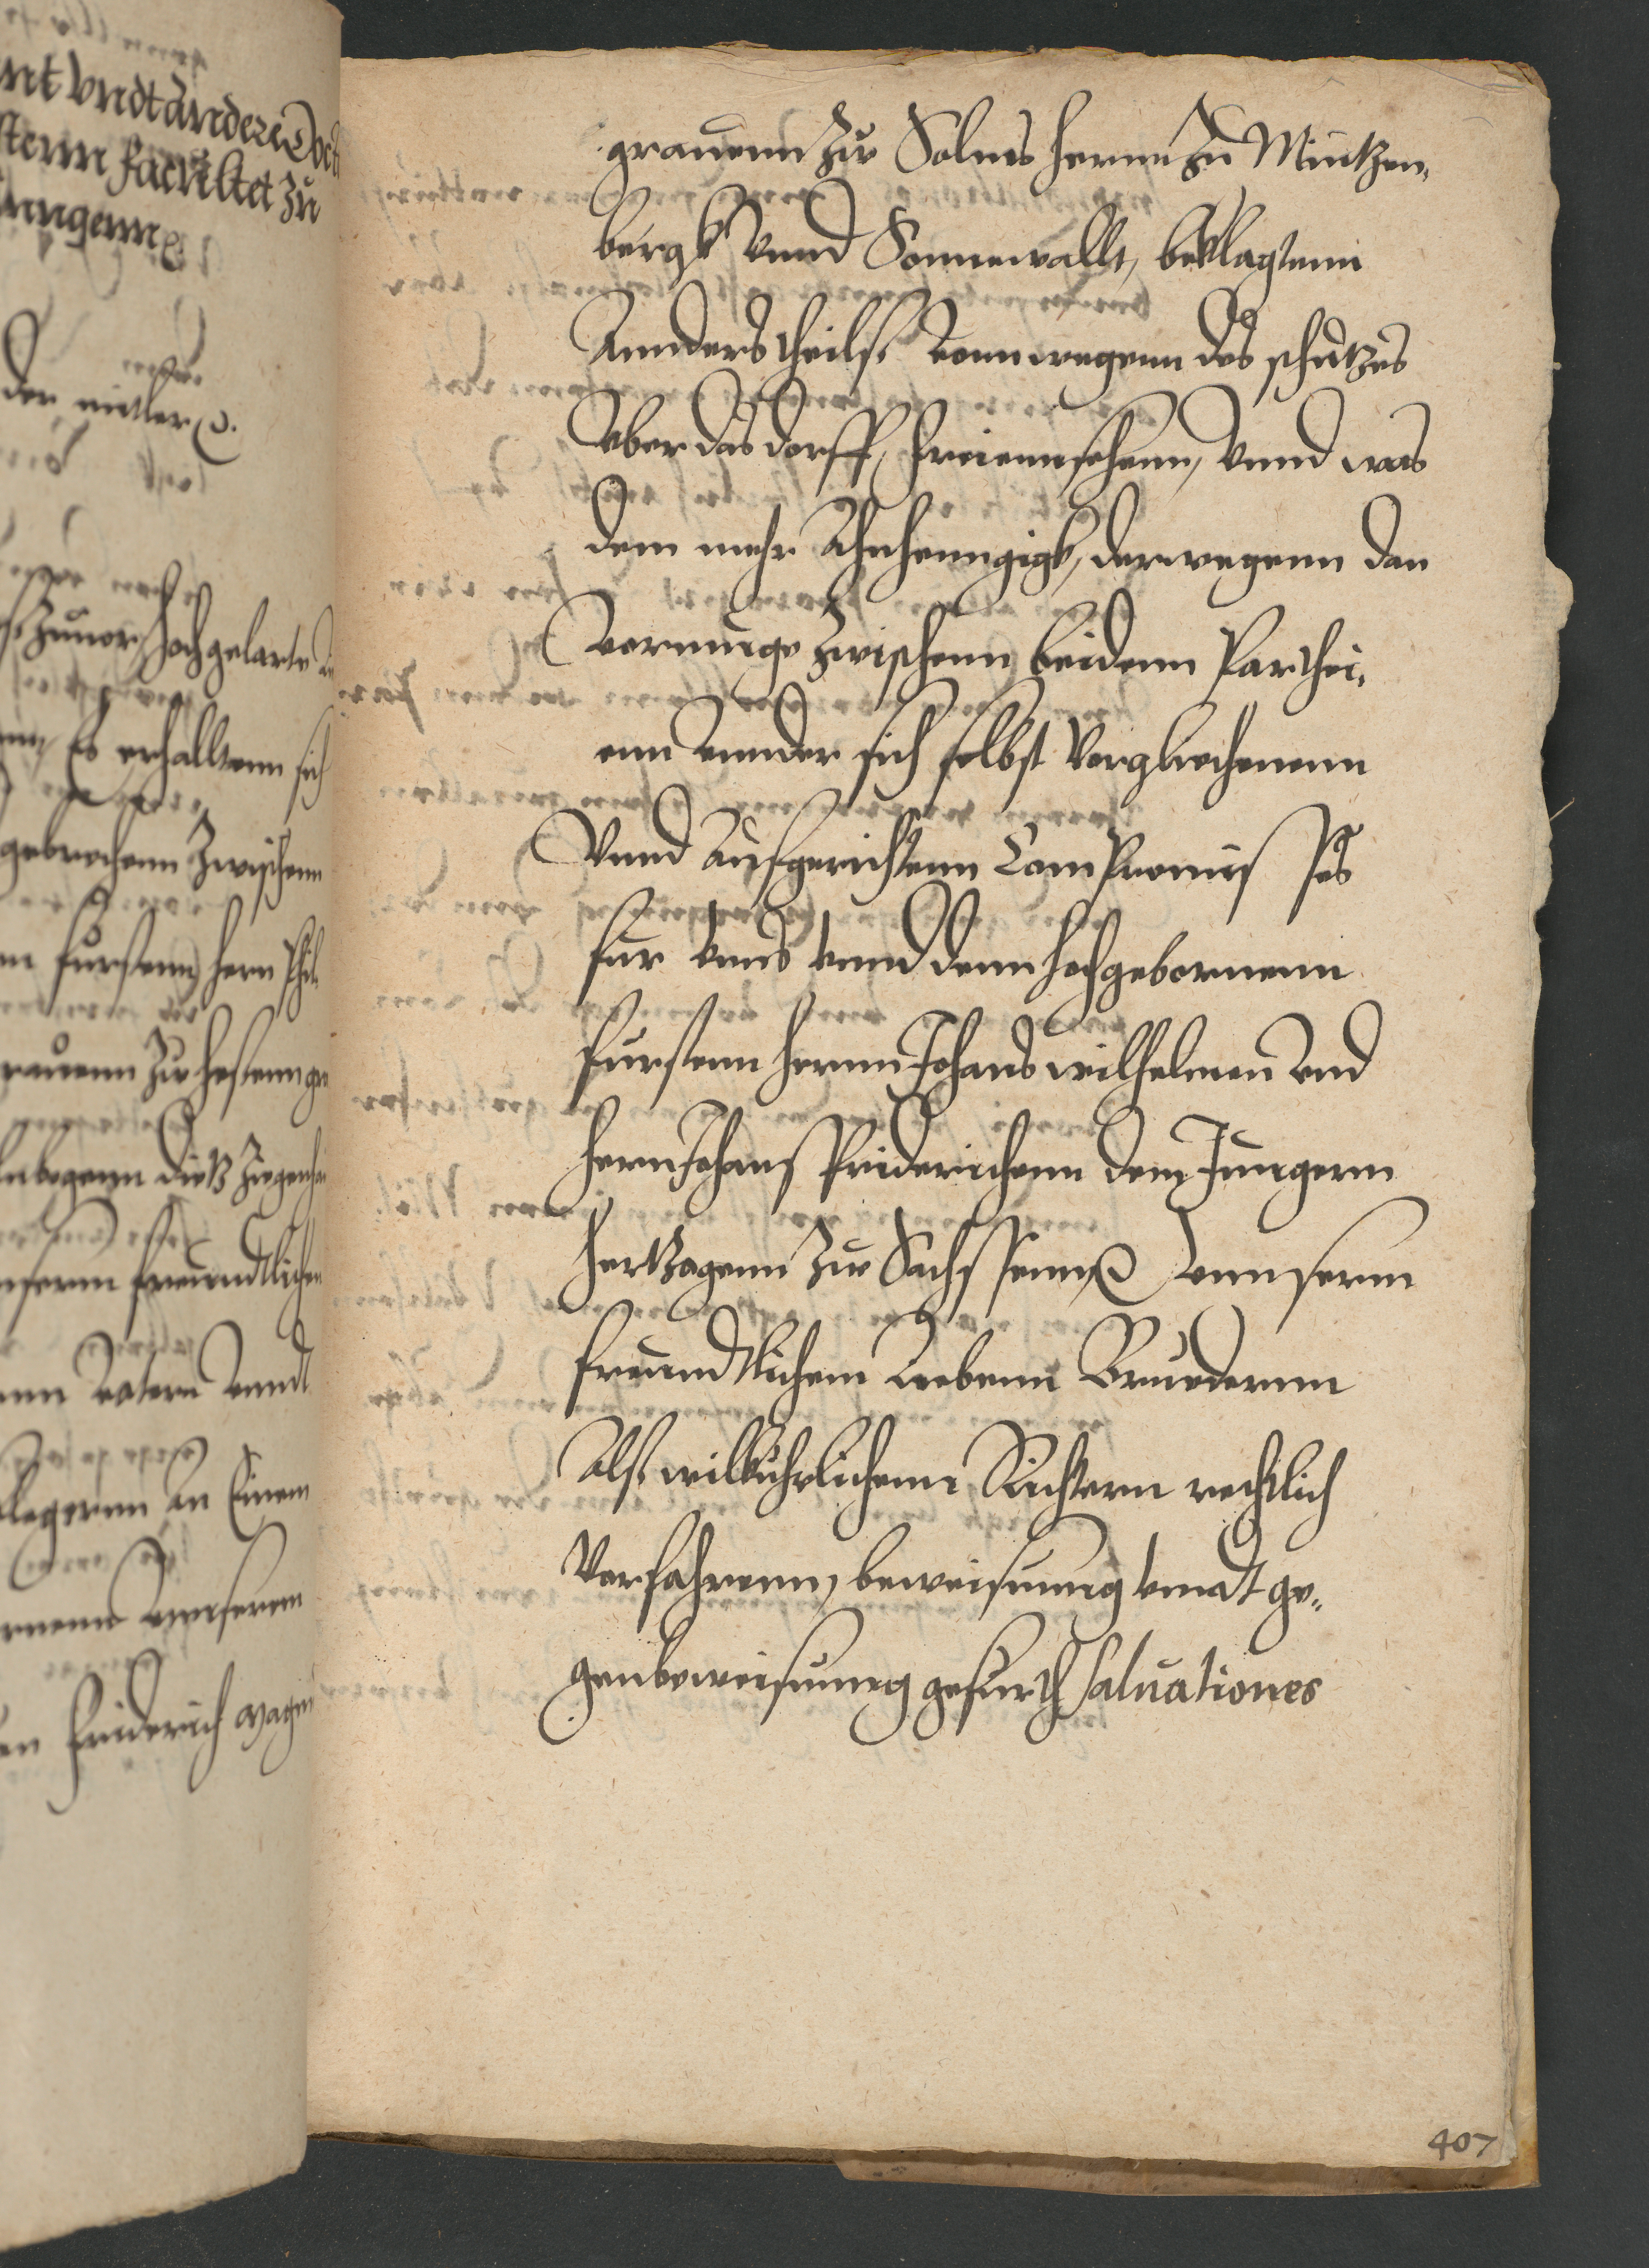 nt vndt anderen
stenn Facultet zu
nngenn
der mitler
zuuor hochgelarte
Es erhalltenn sich
gebrochenn zwischenn
furstenn hern Phil
rauenn zu hessenn
nbogenn dietz ziegenhai
nserm freundtlichen
vatern vnndt
klagernn an Einem
vnnserem
Friderich magni
grauenn zu Solms hernn zu Mintzen„
bergk vnnd Sonnewallt, beklagtenn
Annderstheils. vonnwegenn des schutzes
vber das dorff, freiennsehenn, vnnd was
dem mehr Ahnhenngigk, derwegenn dan
vermuge zwischenn beidenn Parthei„
enn vnnder sich selbst verglichenenn
Vnnd aufgerichtenn Compromisses
fur vnns vnnd denn hochgebornenn
furstenn hernn Johans wilhelmen vnd
hern Johans Friderichenn dem Jungern
hertzogenn zu Sachssenn vnnserm
freundtlichenn liebenn Bruedernn
Alss willkuhrlichenn Richternn rechtlich
verfahrenn, beweisunng vnndt ge„
genbeweisunng gefurth Saluationes
407